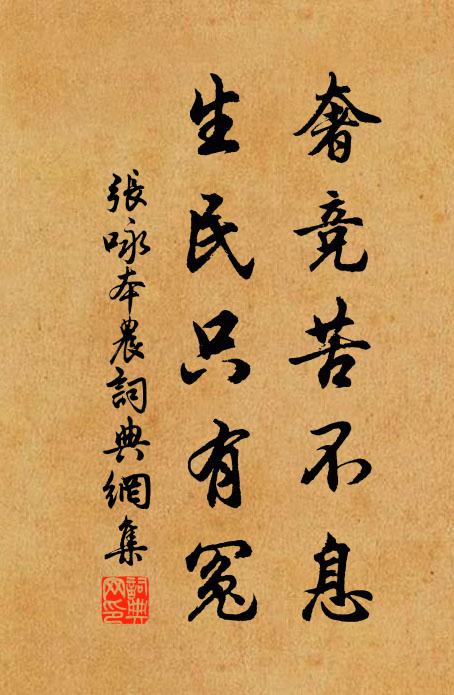 奢竞苦不息
生民只有冤
張咏本農詞典網集
詞典網印